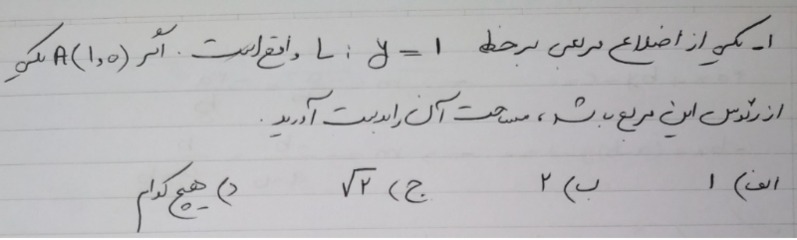 ۱- یکی از اضلاع مربعی بر خط L: y = 1 واقع است. اگر A(1,0) یکی
از رئوس این مربع باشد، مساحت آن را بدست آورید.
الف) ۱ ب) ۲ ج) √۲ د) هیچ کدام